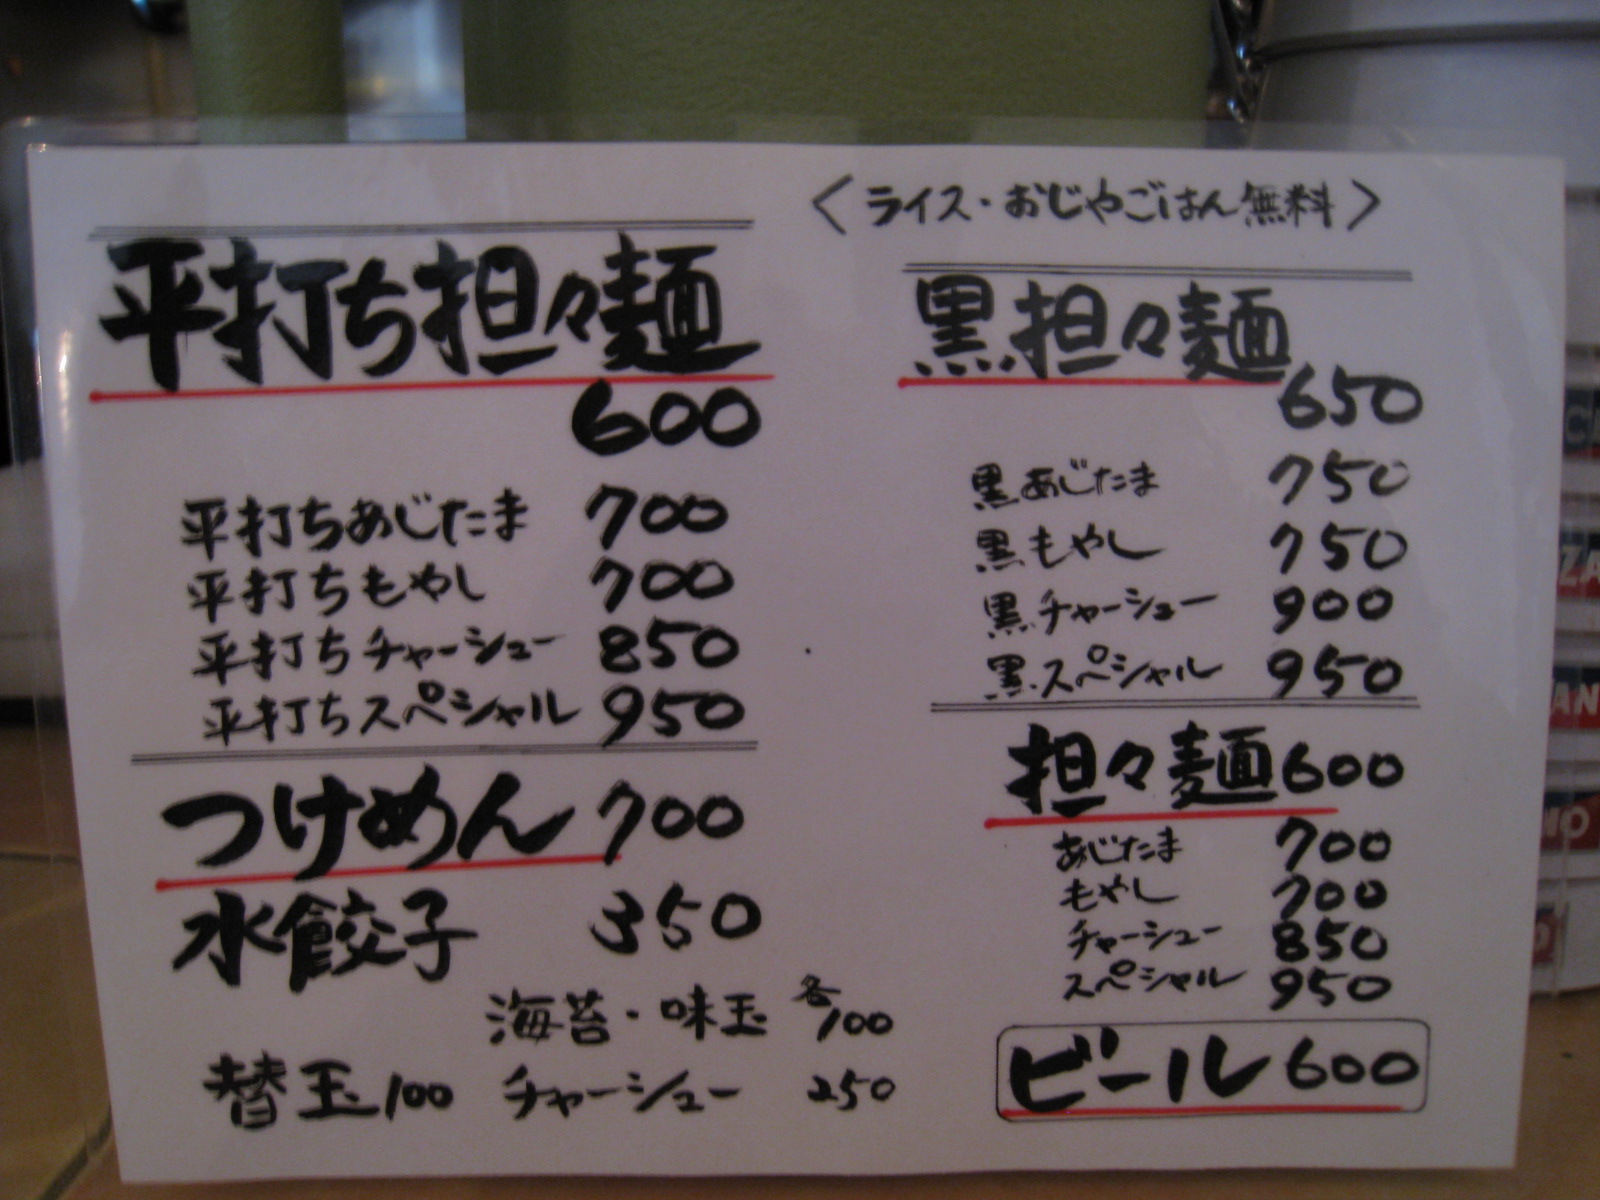 〈ライス・おじやごはん無料〉
平打ち担々麺
600
平打ちあじたま 700
平打ちもやし 700
平打ちチャーシュー 850
平打ちスペシャル 950
つけめん 700
水餃子 350
海苔・味玉 各100
替玉100 チャーシュー 250
黒担々麺
650
黒あじたま 750
黒もやし 750
黒チャーシュー 900
黒スペシャル 950
担々麺600
あじたま 700
もやし 700
チャーシュー 850
スペシャル 950
ビール600